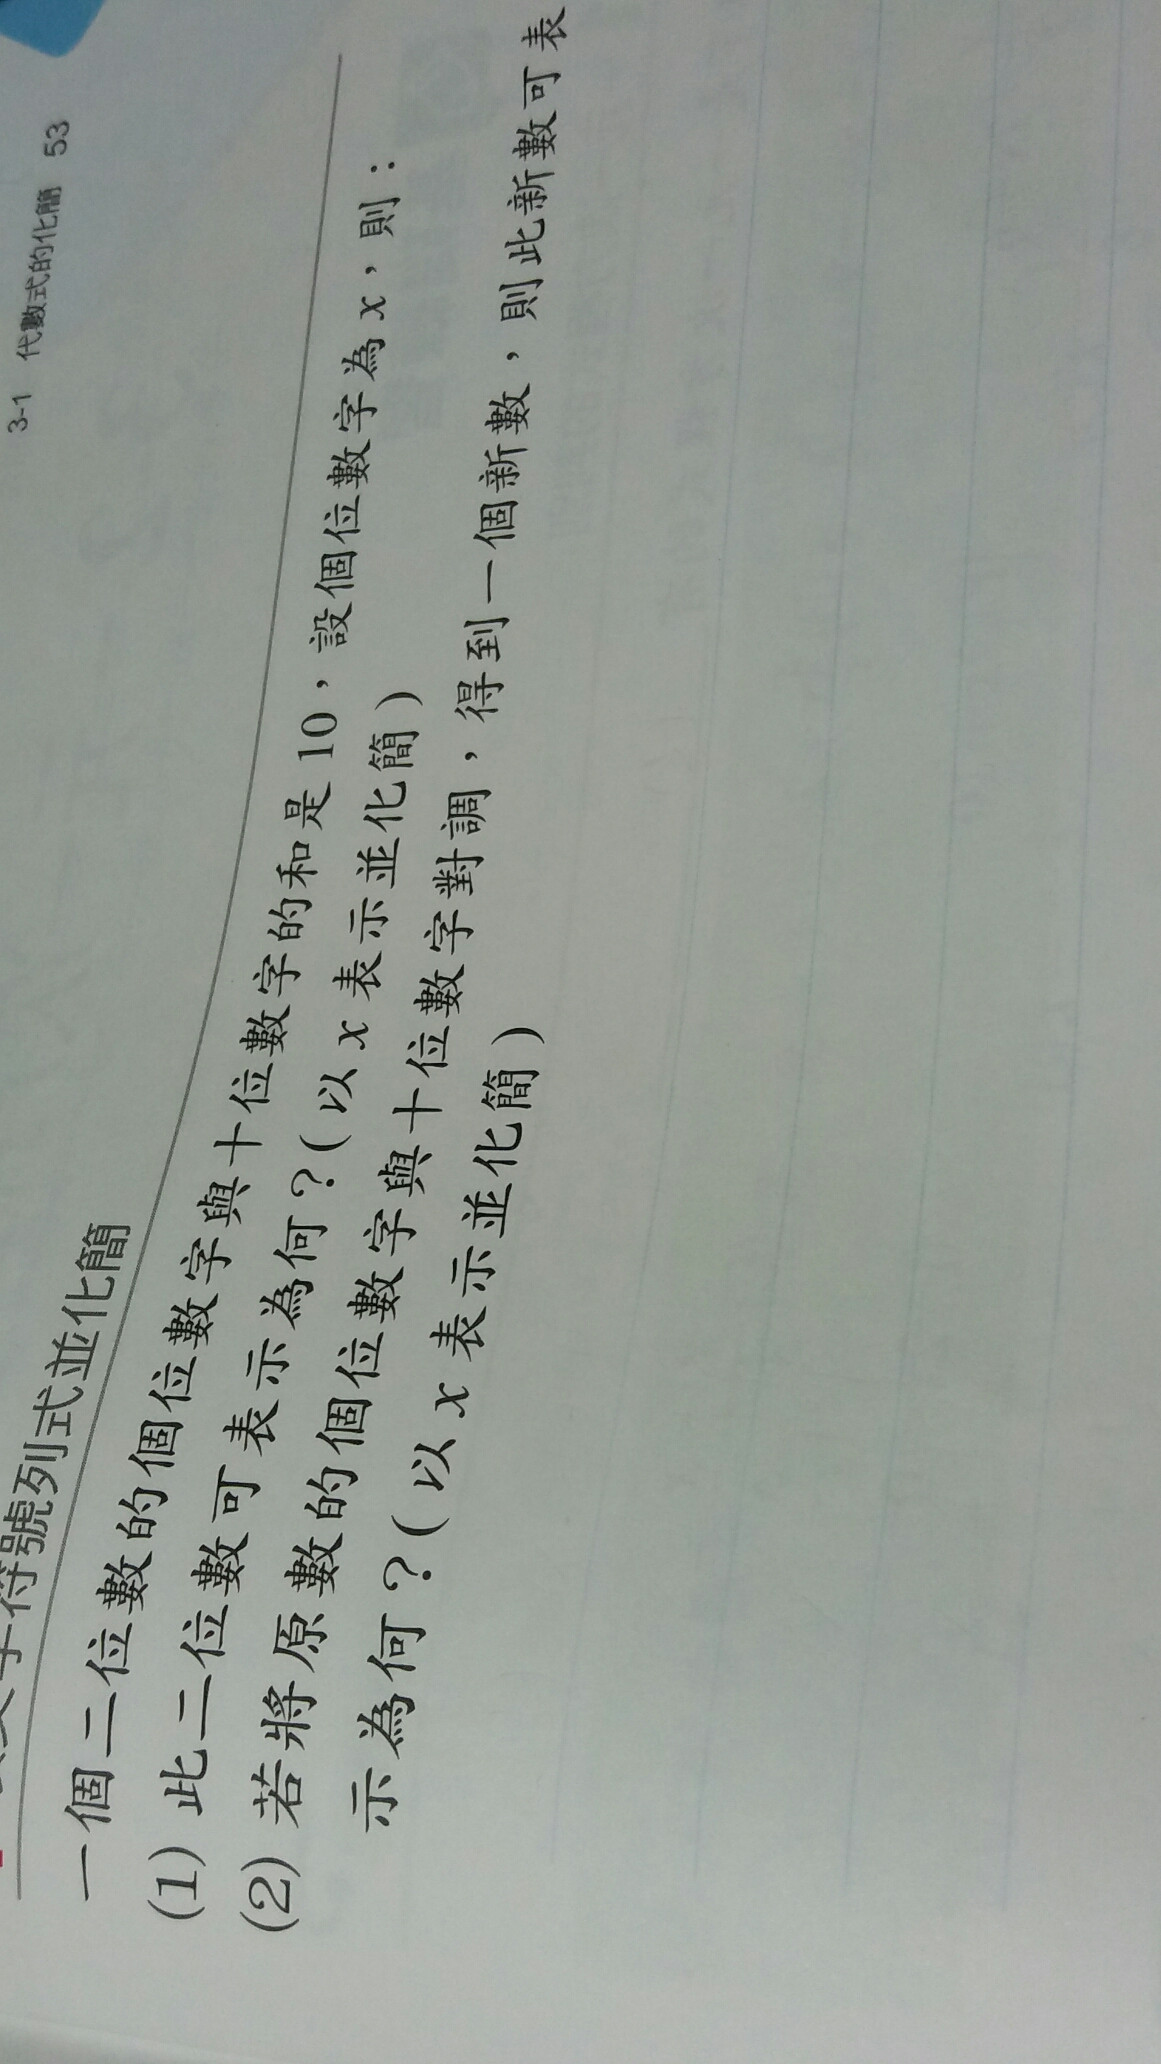 3-1 代數式的化簡 53
符號列式並化簡
一個二位數的個位數字與十位數字的和是 10，設個位數字為 x，則：
(1) 此二位數可表示為何？(以 x 表示並化簡)
(2) 若將原數的個位數字與十位數字對調，得到一個新數，則此新數可表
示為何？(以 x 表示並化簡)